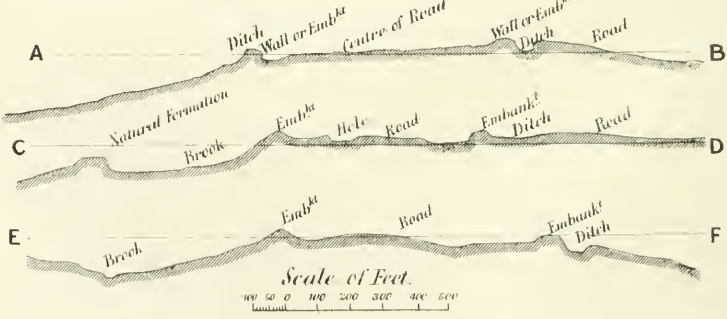 A Ditch Wall or Embkt Centre of Road Wall or Embkt Ditch Road B
C Natural Formation Brook Embkt Hole Road Embankt. Ditch Road D
E Brook Embkt Road Embankt. Ditch F
Scale of Feet.
100 50 0 100 200 300 400 500